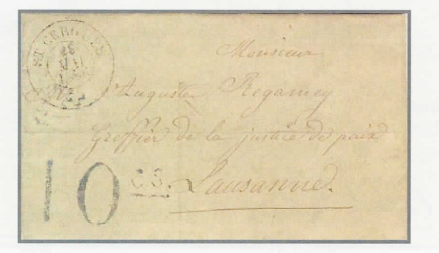 ST CERGUES
Monsieur
Auguste Regamey
Greffier de la justice de paix
10 cs. Lausanne.